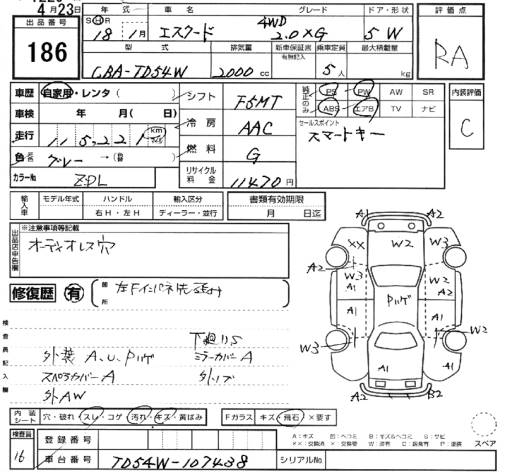 4月23日
出品番号
186
年式
S・H
18年 1月
車名
エスクード
グレード
4WD
2.0×G
ドア・形状
5 W
評価点
RA
型式
CBA-TD54W
排気量
2000 cc
新車保証書
有無記入
乗車定員
5人
最大積載量
kg
車歴 自家用・レンタ ( )
シフト F5MT
純正のみ
PS PW AW SR
ABS エアB TV ナビ
内装評価
C
車検 年 月( )
冷房 AAC
セールスポイント
スマートキー
走行 115,221 km
燃料 G
色名 グレー → (替 )
リサイクル料金 11470円
カラーNo ZDL
輸入車
モデル年式 ハンドル 輸入区分 書類有効期限
右H・左H ディーラー・並行 月 日迄
出品店申告欄
※注意事項等記載
オーディオレス穴
修復歴 有
箇所
検査員記入欄
外装 A、U、Pハゲ
ミラーカバーA
スペアカバーA
外AW
A1 A2
XX W2 W3
A2 W3 W2
A1 Pハゲ A1
W3 A1 W2
A1 A1
A2 B2
内装シート
穴・破れ・スレ・コゲ・汚れ・キズ・黄ばみ
Fガラス キズ・飛石・×要す
A:キズ U:ヘコミ B:キズ&ヘコミ S:サビ
XX:交換済 X:交換要 W:波有 C:腐食有 P:塗装
スペア
検査員
16
登録番号
車台番号 TD54W-107438
シリアルNo